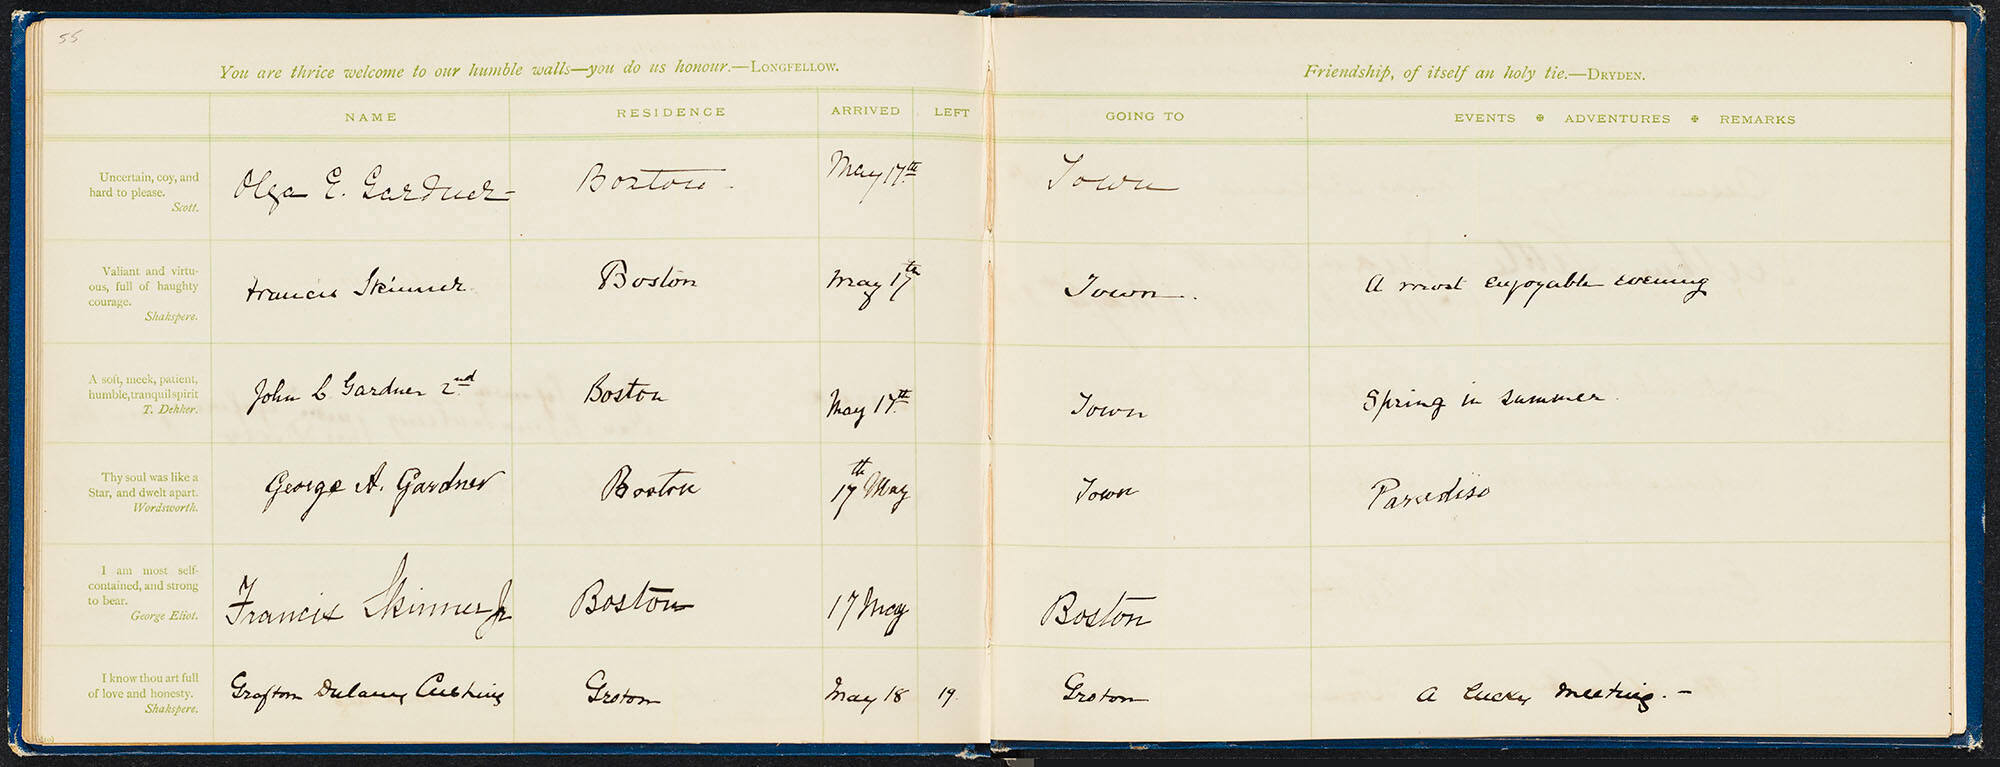 55
You are thrice welcome to our humble walls—you do us honour.—LONGFELLOW.
Friendship, of itself an holy tie.—DRYDEN.
NAME RESIDENCE ARRIVED LEFT GOING TO EVENTS ✠ ADVENTURES ✠ REMARKS
Uncertain, coy, and
hard to please.
Scott.
Olga E. Gardner Boston. May 17th Town
Valiant and virtu-
ous, full of haughty
courage.
Shakspere.
Francis Skinner Boston May 17th Town. A most enjoyable evening
A soft, meek, patient,
humble, tranquil spirit
T. Dekker.
John L. Gardner 2nd Boston May 17th Town Spring in summer
Thy soul was like a
Star, and dwelt apart.
Wordsworth.
George A. Gardner Boston 17th May Town Paradiso
I am most self-
contained, and strong
to bear.
George Eliot.
Francis Skinner Jr Boston 17 May Boston
I know thou art full
of love and honesty.
Shakspere.
Grafton Dulany Cushing Groton May 18 19. Groton A lucky meeting.—